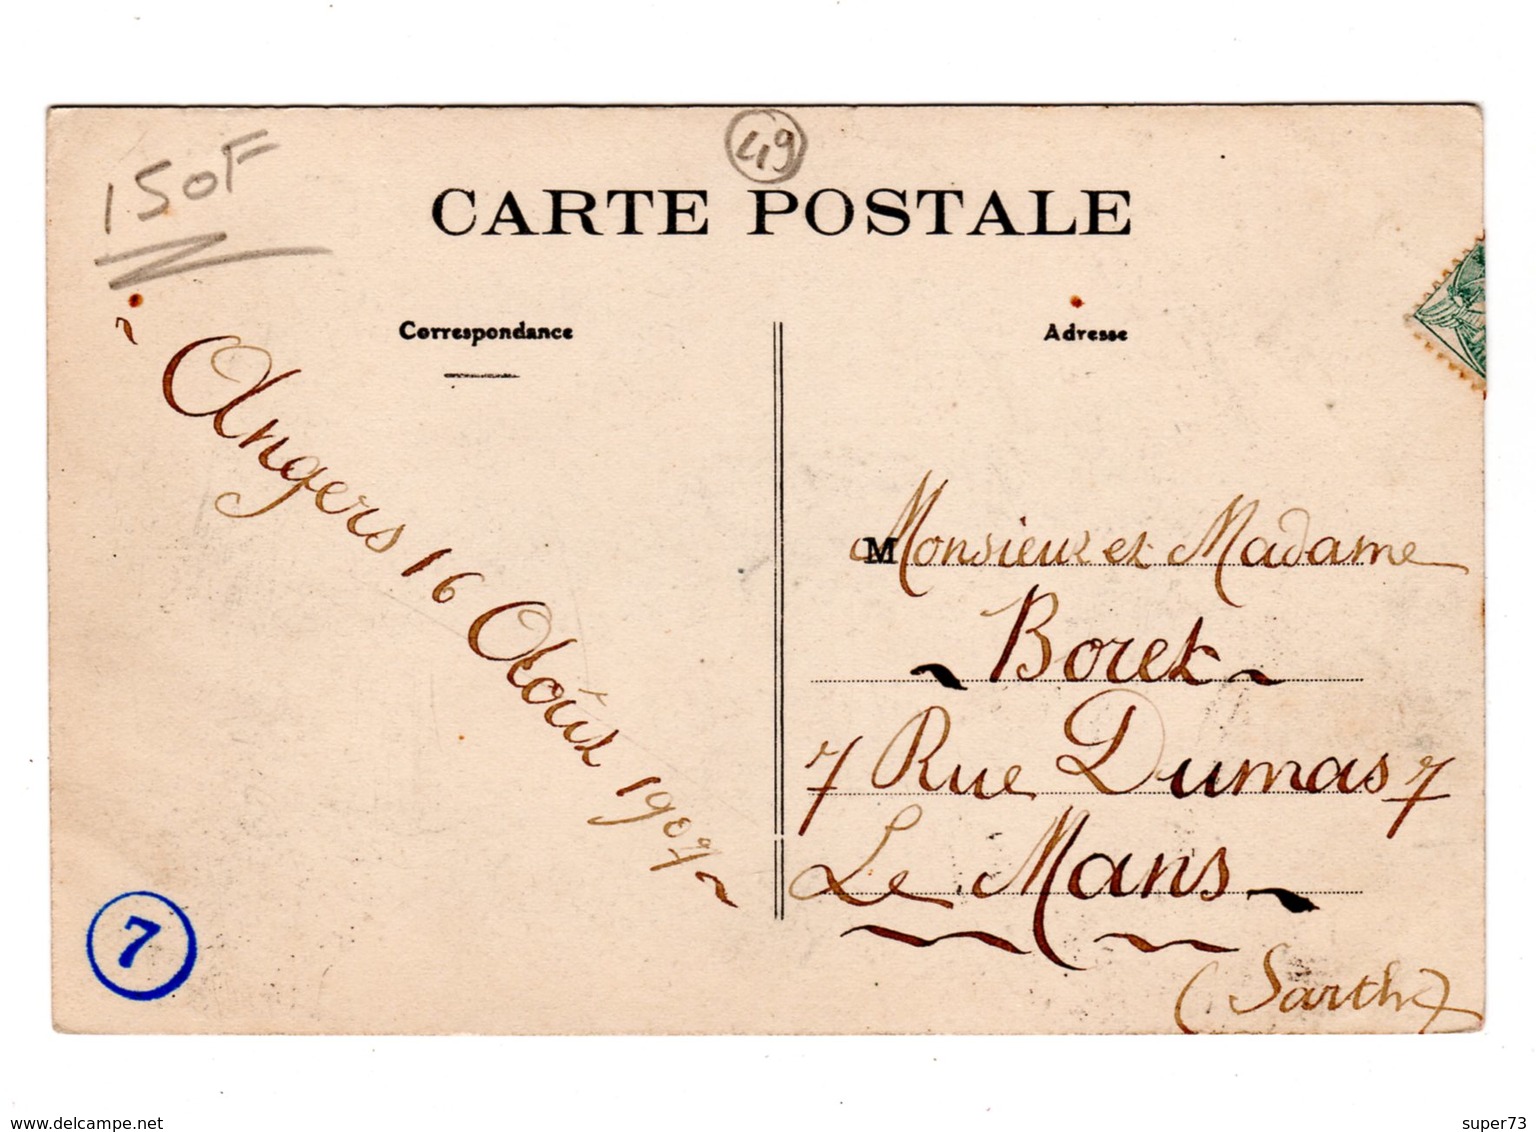 150F
49
CARTE POSTALE
Correspondance
Adresse
Angers 16 Août 1907
M Monsieur et Madame
~ Boret ~
7 Rue Dumas 7
Le Mans
(Sarthe)
7
www.delcampe.net
super73